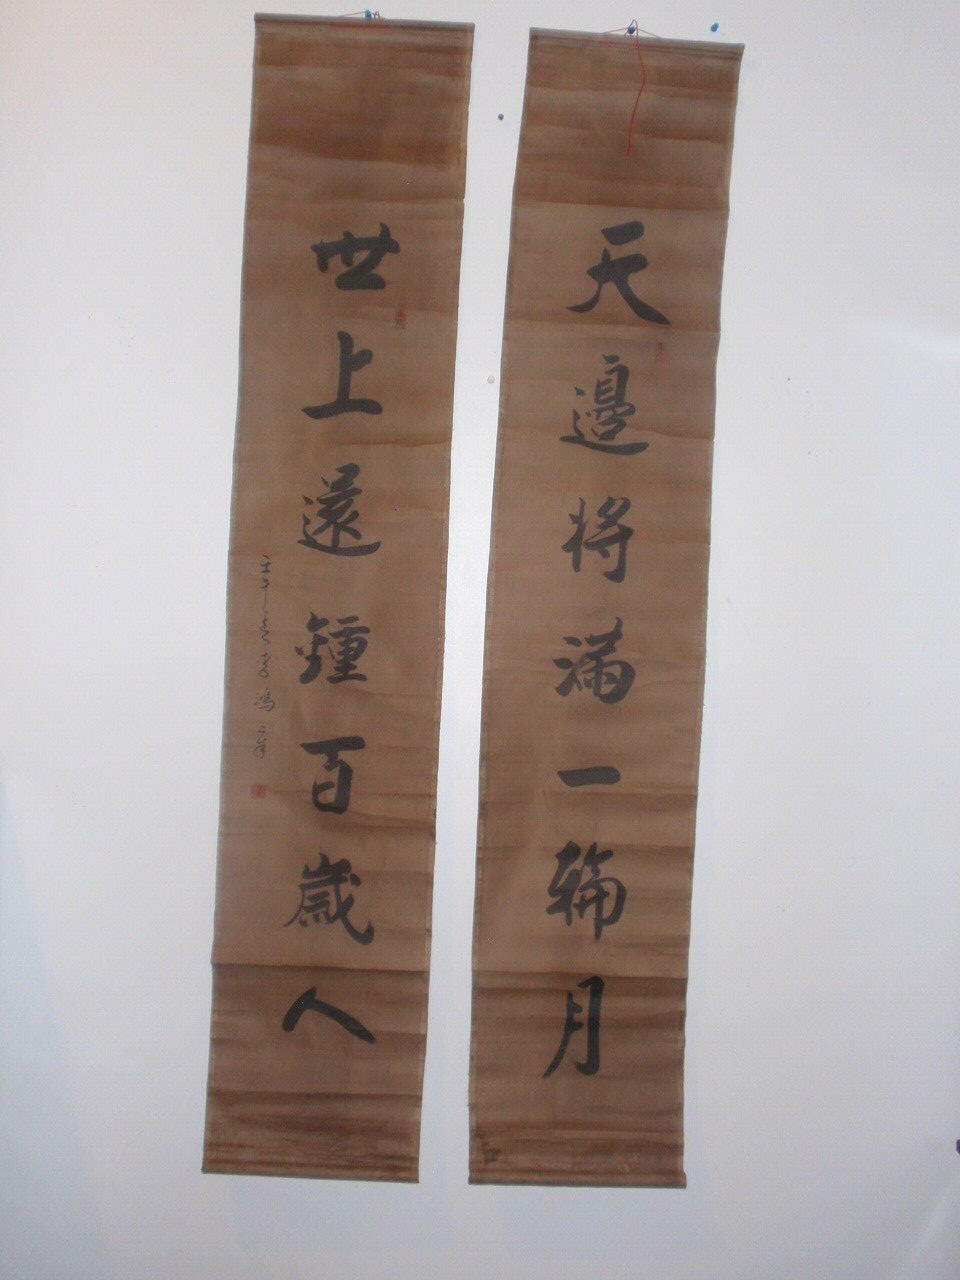 天邊將滿一輪月
世上還鍾百歲人